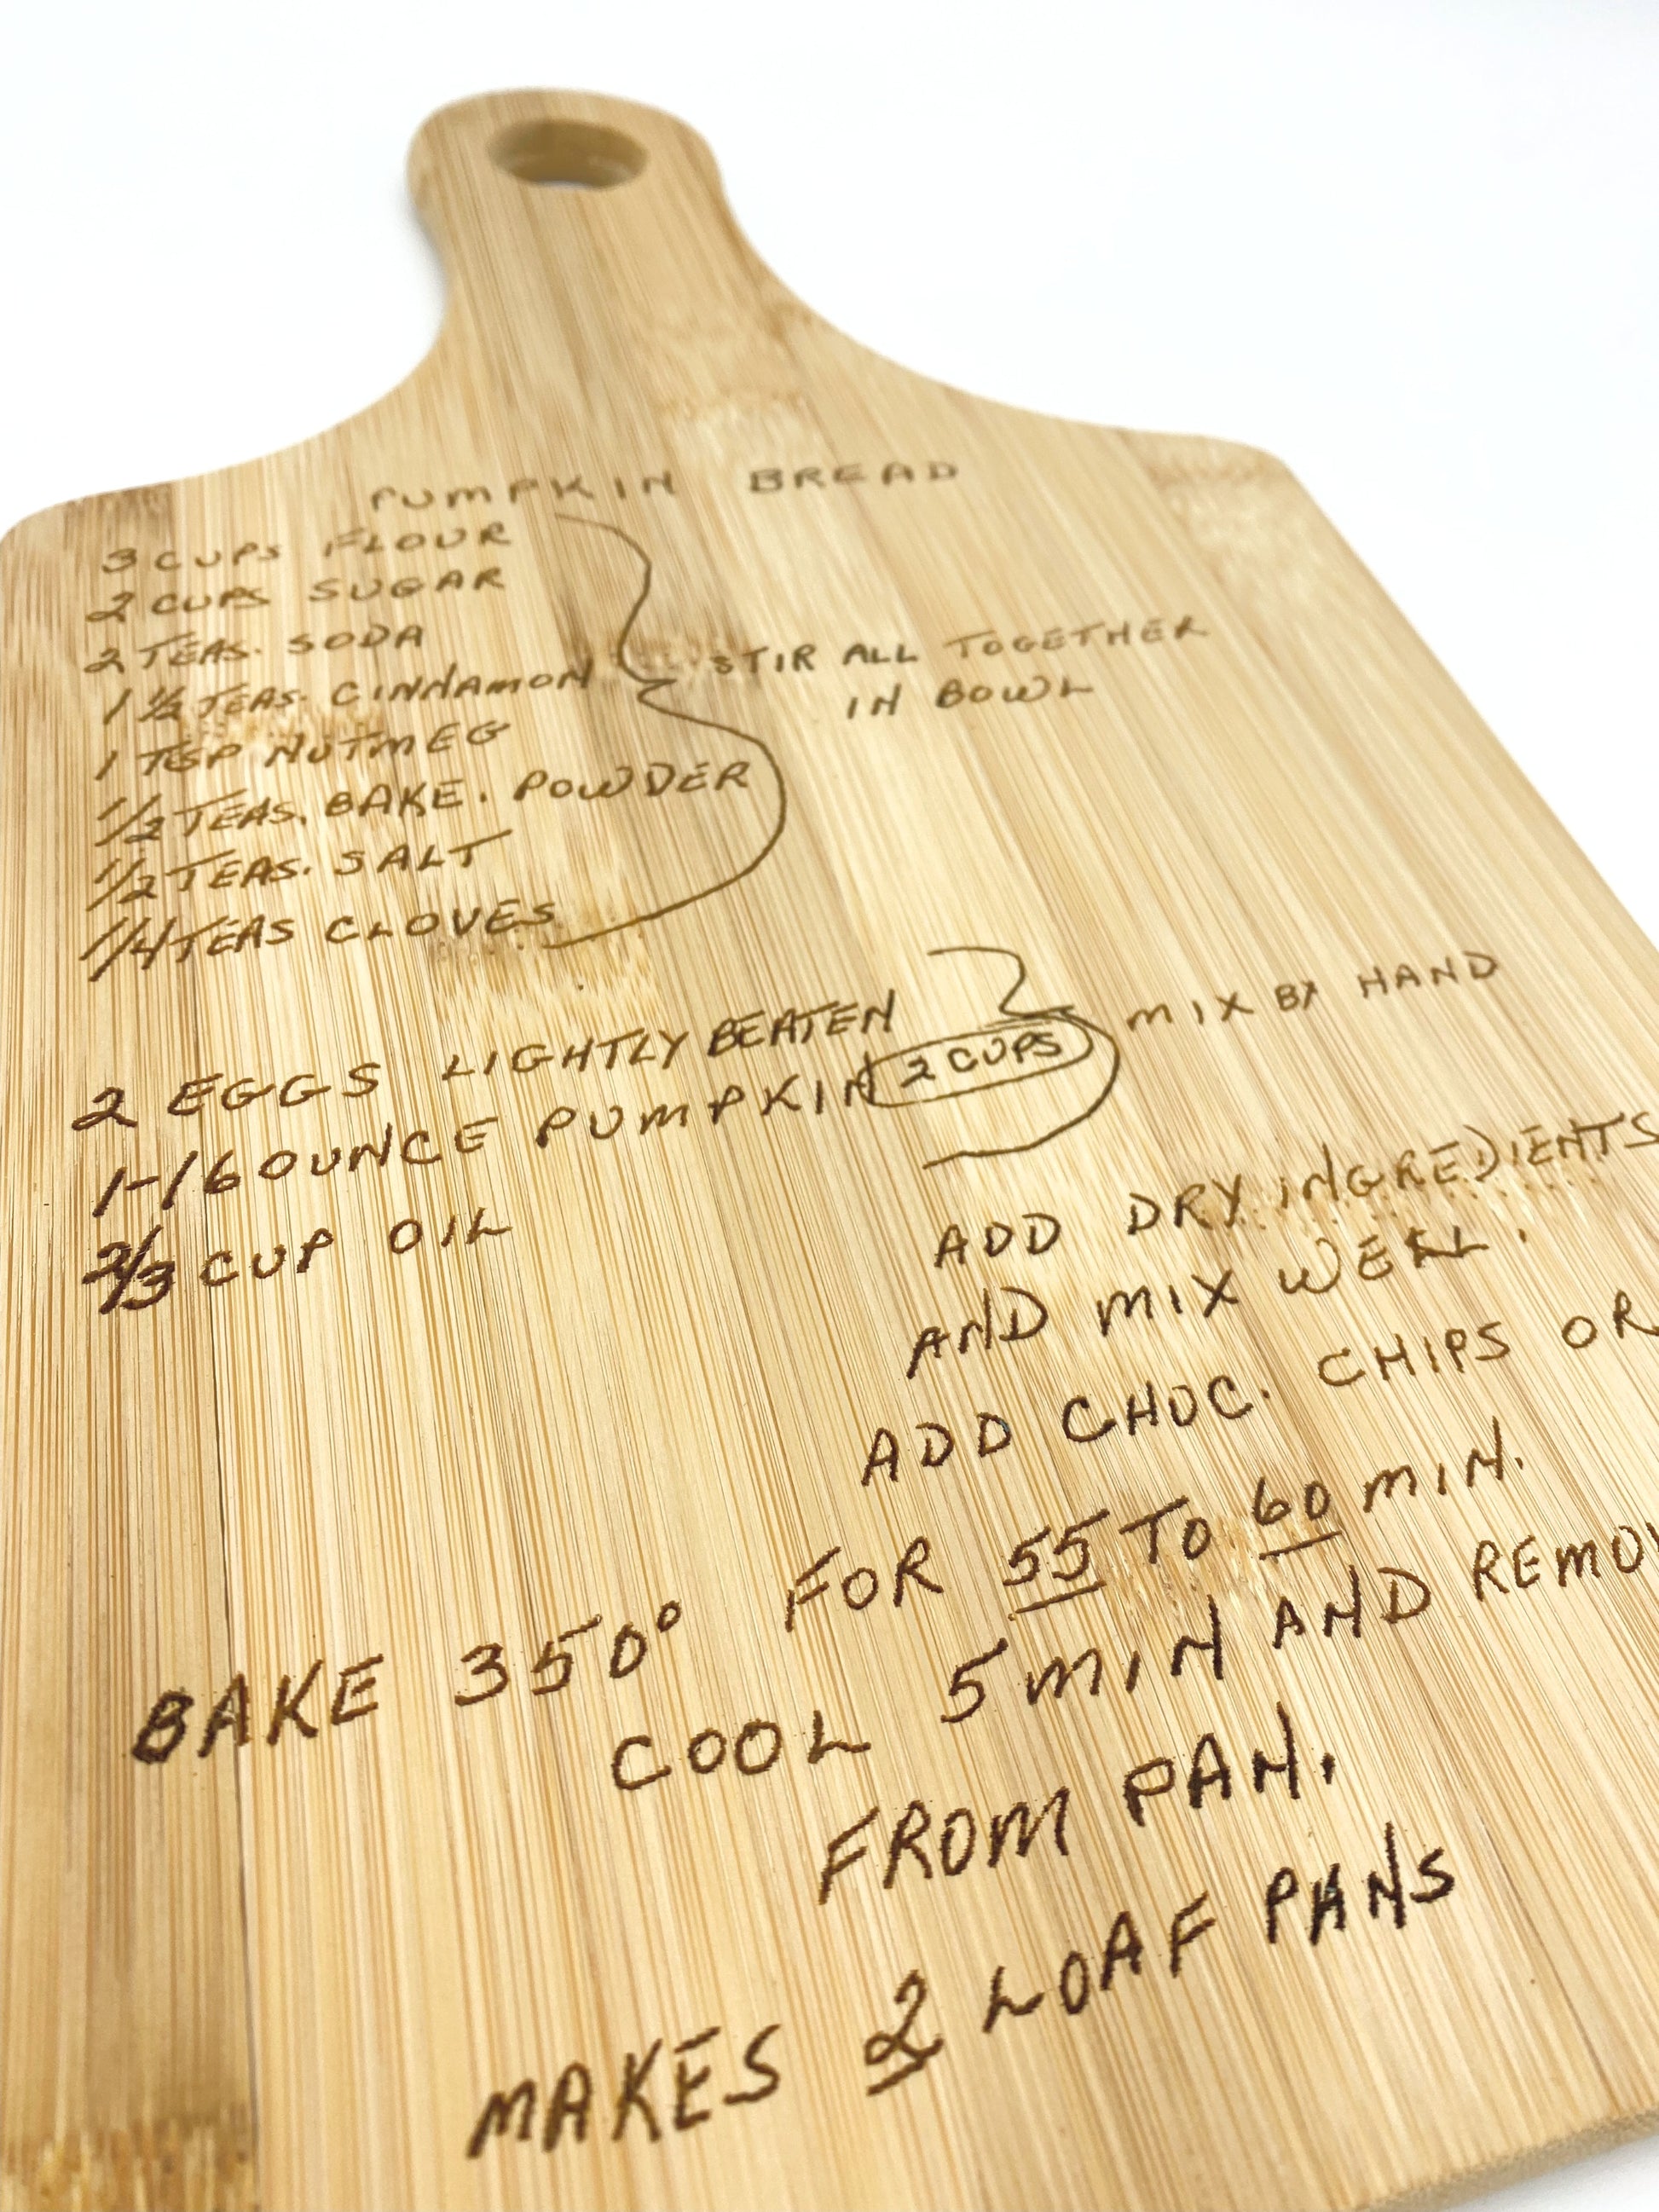 PUMPKIN BREAD
3 CUPS FLOUR
2 CUPS SUGAR
2 TEAS. SODA
1 1/2 TEAS. CINNAMON
1 TSP NUTMEG
1/2 TEAS. BAKE. POWDER
1/2 TEAS. SALT
1/4 TEAS CLOVES
STIR ALL TOGETHER
IN BOWL
2 EGGS LIGHTLY BEATEN
1-16 OUNCE PUMPKIN 2 CUPS
2/3 CUP OIL
MIX BY HAND
ADD DRY INGREDIENTS
AND MIX WELL.
ADD CHOC. CHIPS OR
BAKE 350° FOR 55 TO 60 MIN.
COOL 5 MIN AND REMOV
FROM PAN.
MAKES 2 LOAF PANS